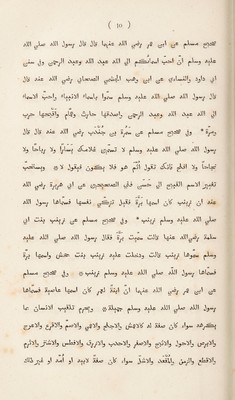 ( ١٠ )
صحيح مسلم عن ابن عمر رضي الله عنهما قال قال رسول الله صلي الله
عليه وسلم ان احب اسمائكم الي الله عبد الله وعبد الرحمن وفي سنن
ابي داود والنسائي عن ابي وهب الجشمي الصحابي رضي الله عنه قال
قال رسول الله صلي الله عليه وسلم سموا باسماء الانبياء واحب الاسماء
الي الله عبد الله وعبد الرحمن واصدقها حارث وهمام واقبحها حرب
ومرة * وفي صحيح مسلم عن سمرة بن جندب رضي الله عنه قال قال
رسول الله صلي الله عليه وسلم لا تسمين غلامك يسارا ولا رباحا ولا
نجاحا ولا افلح فانك تقول اثم هو فلا يكون فيقول لا * ويستحب
تغيير الاسم القبيح الي حسن ففي الصحيحين عن ابي هريرة رضي الله
عنه ان زينب كان اسمها برة فقيل تزكي نفسها فسماها رسول الله
صلي الله عليه وسلم زينب * وفي صحيح مسلم عن زينب بنت ابي
سلمة رضي الله عنها قالت سميت برة فقال رسول الله صلي الله عليه
وسلم سموها زينب قالت ودخلت عليه زينب بنت جحش واسمها برة
فسماها رسول الله صلي الله عليه وسلم زينب * وفي صحيح مسلم
عن ابن عمر رضي الله عنهما ان ابنة لعمر كان اسمها عاصية فسماها
رسول الله صلي الله عليه وسلم جميلة * ويحرم تلقيب الانسان بما
يكرهه سواء كان صفة له كالاعمش والاجلح والاعمي والاصم والاقرع والاعرج
والابرص والاحول والاثبج والاصفر والاحدب والازرق والافطس والاشتر والاثرم
والاقطع والزمن والمقعد والاشل سواء كان صفة لابيه او لامه او غير ذلك